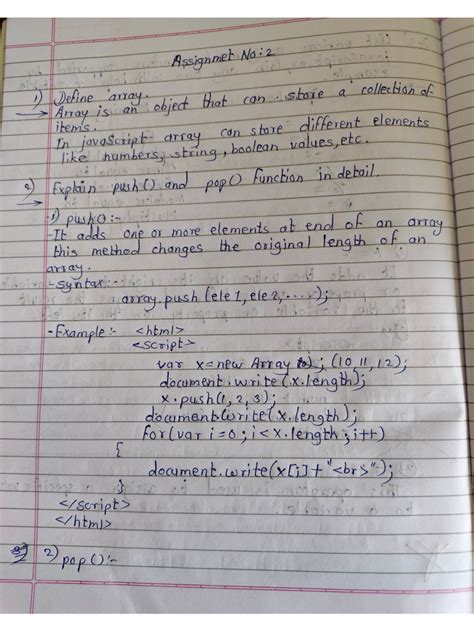 Assignmet No:2
1) Define array.
→ Array is an object that can store a collection of
items.
In javascript array can store different elements
like numbers, string, boolean values, etc.
2) Explain push() and pop() function in detail.
→
1) push():-
-It adds one or more elements at end of an array
this method changes the original length of an
array.
-syntax:-
array.push (ele1, ele2, .....);
-Example:- <html>
<script>
var x=new Array ; (10,11,12);
document.write(x.length);
x.push(1,2,3);
document.write(x.length);
for(var i=0; i<x.length; i++)
{
document.write(x[i]+"<br>");
}
</script>
</html>
2) pop():-